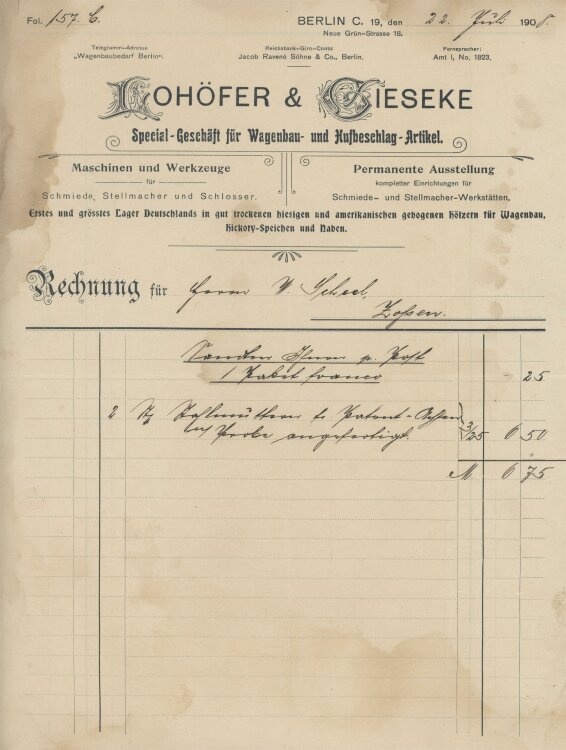 Fol. 157. C.
BERLIN C. 19, den 22. Juli 1908.
Neue Grün-Strasse 18.
Telegramm-Adresse
„Wagenbaubedarf Berlin“.
Reichsbank-Giro-Conto
Jacob Ravené Söhne & Co., Berlin.
Fernsprecher:
Amt I, No. 1823.
LOHÖFER & GIESEKE
Special-Geschäft für Wagenbau- und Hufbeschlag-Artikel.
Maschinen und Werkzeuge
für
Schmiede, Stellmacher und Schlosser.
Permanente Ausstellung
kompletter Einrichtungen für
Schmiede- und Stellmacher-Werkstätten.
Erstes und grösstes Lager Deutschlands in gut trockenen hiesigen und amerikanischen gebogenen Hölzern für Wagenbau,
Hickory-Speichen und Naben.
Rechnung für Herrn W. Scheel,
Zossen.
Sandten Ihnen p. Post
1 Paket franco 25
2 St. Stellmuttern f. Patent-Achsen
Probe angefertigt. 3/25 6 50
M. 6 75.